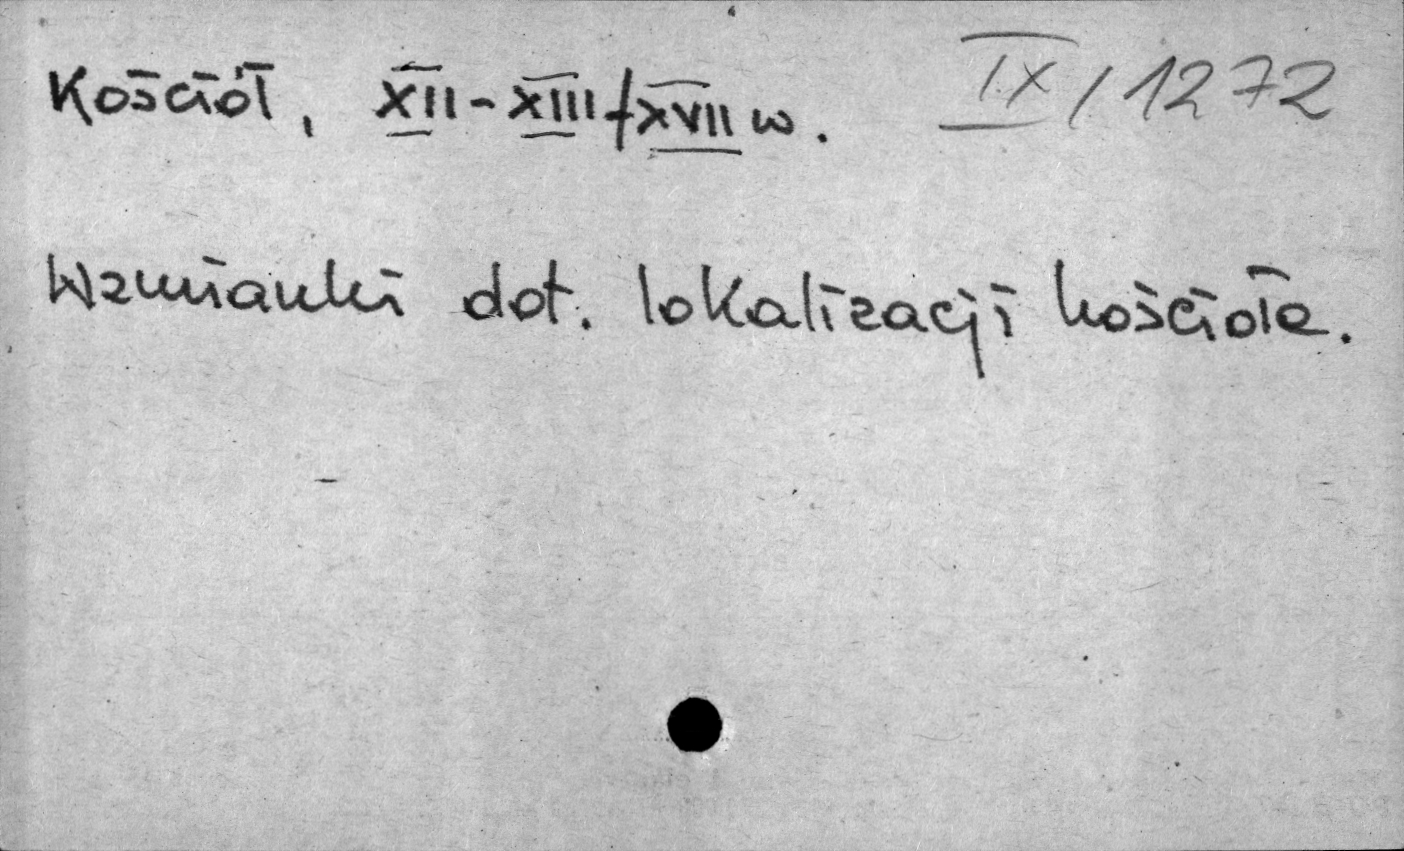 Kościół, XII-XIII/XVII w. IX/1272
Wzmianki dot. lokalizacji kościoła.